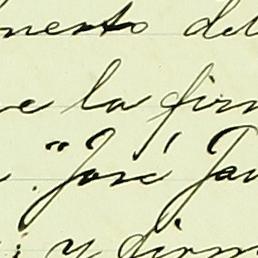 nento del
e la fir
. "José Ja
y firm